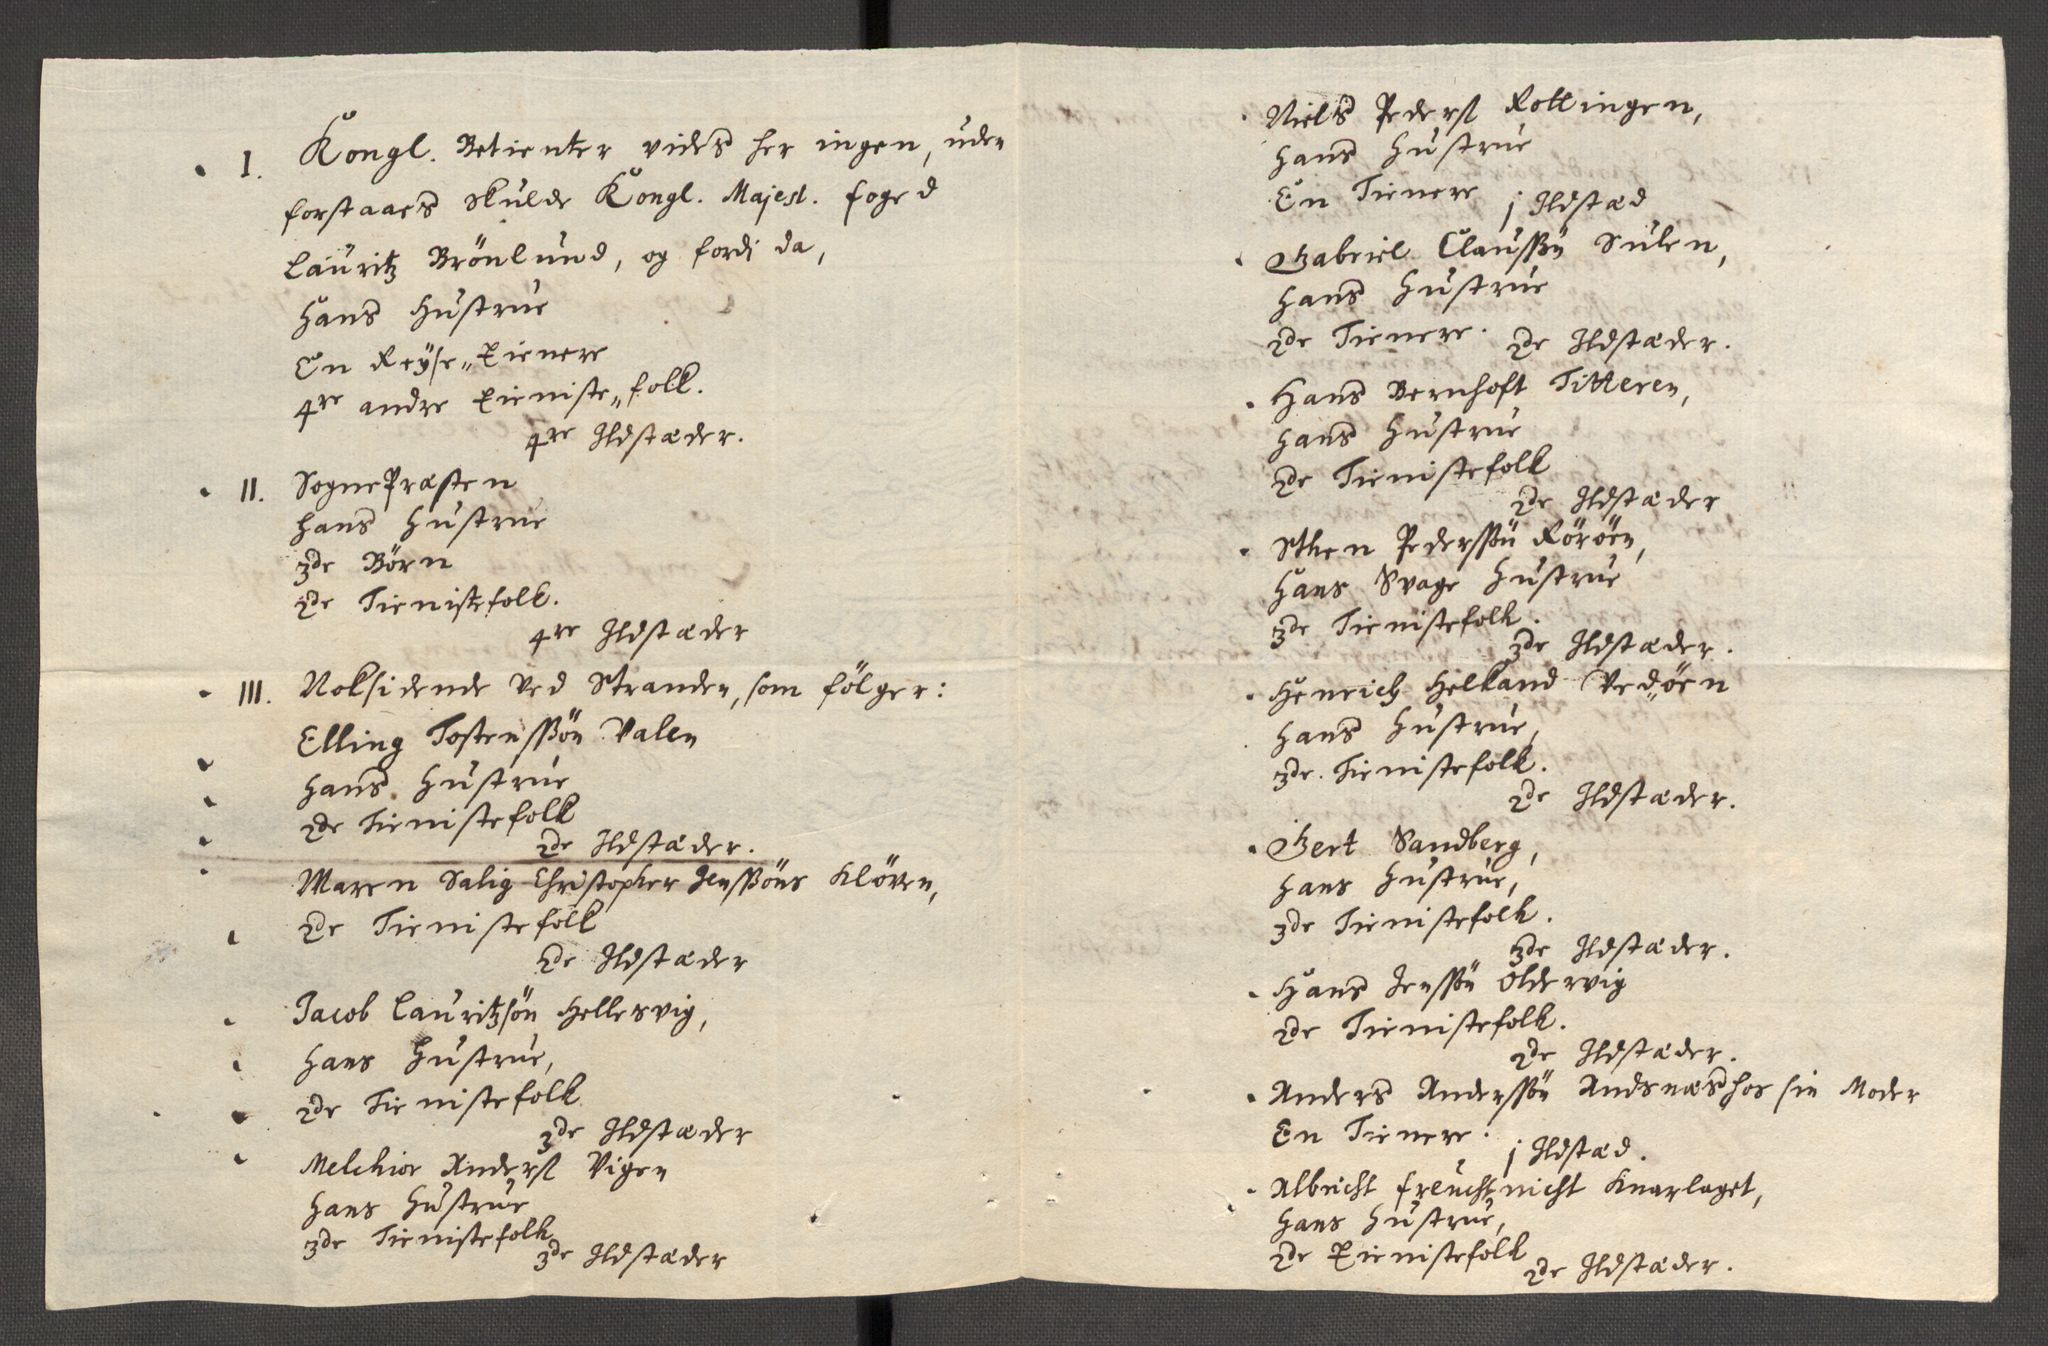 I. Kongl. Betienter vides her ingen, uden
forstaaes skulde Kongl. Majest. foged
Lauritz Brönlund, og fordi da,
Hans Hustrue
En Reyse„tienere
4re andre tieniste„folk.
4re Ildstæder.
II. SognePræsten
hans Hustrue
3de Börn
2de Tienistefolk.
4re Ildstæder
III. Noksidende ved Stranden, som fölger:
Elling Tostenssön Valen
hans Hustrue
2de Tienistefolk
2de Ildstæder.
Maren Salig Christopher Jenssöns Klöven,
2de Tienistefolk
2de Ildstæder
Jacob Lauritzsön Hellesvig,
hans Hustrue,
2de Tienistefolk
3de Ildstæder
Melchior Anders. Vigen
hans Hustrue
3de Tienistefolk
3de Ildstæder
Niels Peders. Rottingen,
hans Hustrue
En Tienere
j Ildstæd
Gabriel Claussön Sulen,
hans Hustrue
2de Tienere.
2de Ildstæder.
Hans Bernhoft Titteren,
hans Hustrue
2de Tienistefolk
2de Ildstæder
Sthen Pederssön Röröen,
Hans Svage Hustrue
3de Tienistefolk.
3de Ildstæder.
Henrich Helkand Vedöen
hans Hustrue,
3de. Tienistefolk.
2de Ildstæder.
Gert Sandberg,
hans Hustrue,
3de Tienistefolk.
3de Ildstæder.
Hans Jenssön Oldervig
2de Tienistefolk.
2de Ildstæder.
Anders Anderssön Andsnæs hos sin Moder
En Tienere.
j Ildstæd.
Albricht freuchtnicht Knarlaget,
hans Hustrue,
2de Tienistefolk
2de Ildstæder.